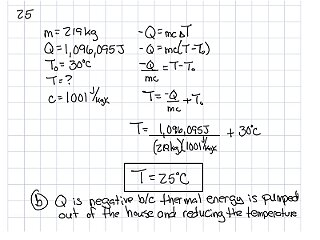 25
m = 219 kg
Q = 1,096,095 J
T₀ = 30°C
T = ?
c = 1001 J/kgK
-Q = mcΔT
-Q = mc(T-T₀)
-Q/mc = T-T₀
T = -Q/mc + T₀
T = 1,096,095 J / (219kg)(1001 J/kgK) + 30°C
T = 25°C
(b) Q is negative b/c thermal energy is pumped
out of the house and reducing the temperature